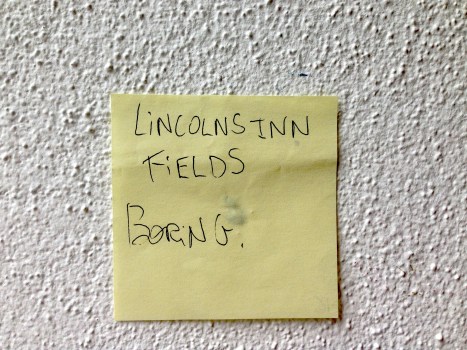 LiNCOLNS INN
FiELDS
BORiNG.